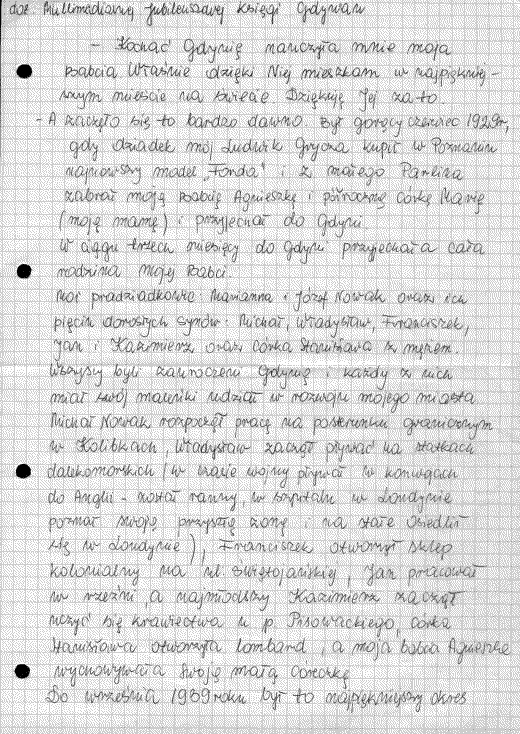 dot. Multimedialnej Jubileuszowej Księgi Gdynian
- Kochać Gdynię nauczyła mnie moja
Babcia Właśnie dzięki Niej mieszkam w najpiękniej-
szym mieście na świecie. Dziękuję Jej za to.
- A zaczęło się to bardzo dawno. Był gorący czerwiec 1929r,
gdy dziadek mój Ludwik Gryczka kupił w Poznaniu
najnowszy model "Forda" i z małego
zabrał moją Babcię Agnieszkę i półroczną córkę Marię
(moją mamę) i przyjechał do Gdyni.
W ciągu trzech miesięcy do Gdyni przyjechała cała
rodzina mojej Babci.
Moi pradziadkowie: Marianna i Józef Nowak oraz ich
pięciu dorosłych synów: Michał, Władysław, Franciszek,
Jan i Kazimierz oraz córka Stanisława z mężem.
Wszyscy byli zauroczeni Gdynią i każdy z nich
miał swój maleńki udział w rozwoju mojego miasta
Michał Nowak rozpoczął pracę na posterunku granicznym
w Kolibkach, Władysław zaczął pływać na statkach
dalekomorskich (w czasie wojny pływał w konwojach
do Anglii - został ranny, w szpitalu w Londynie
poznał swoją przyszłą żonę i na stałe osiedlił
się w Londynie), Franciszek otworzył sklep
kolonialny na ul. Świętojańskiej, Jan pracował
w rzeźni, a najmłodszy Kazimierz zaczął
uczyć się krawiectwa u p. Pisowackiego, córka
Stanisława otworzyła lombard, a moja babcia Agnieszka
wychowywała swoją małą córeczkę
Do września 1939 roku był to najpiękniejszy okres